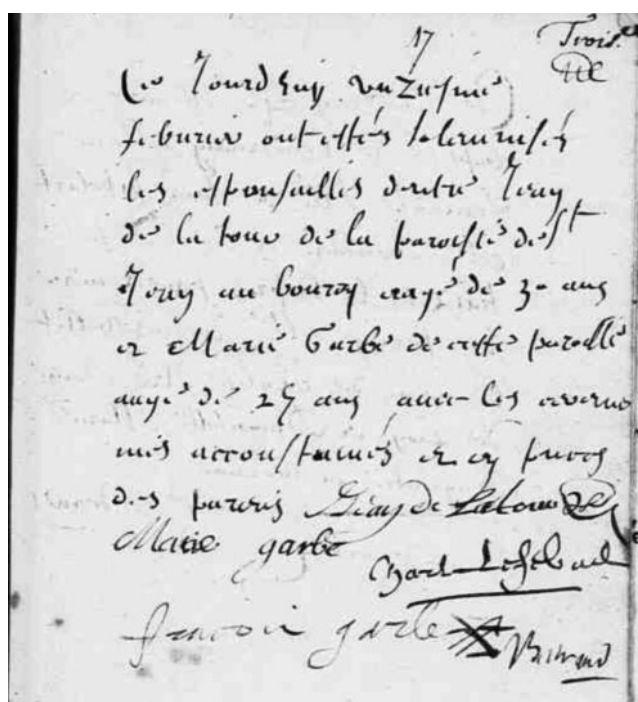 17 Trois
Ce Jourdhuy unziesme
febvrier ont estés solemnisés
les espousailles dentre Jean
de la tour de la paroisse de St
Jean au bourg aagé de 30 ans
et Marie Garbe de cette paroisse
aagé de 25 ans avec les ceremo
nies accoustumés et en
des parens Jean de Latour
Marie garbe
Lefeb
francoi garbe